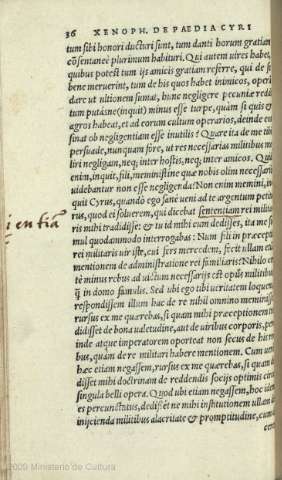 36 XENOPH. DE PAEDIA CYRI
tum sibi honori ducturi sunt, tum danti horum gratiam
cōsentaneū plurimum habituri. Qui autem uires habet,
quibus potest tum ijs amicis gratiam referre, qui de se
bene meruerint, tum de his quos habet inimicos, operā
dare ut ultionem sumat, hunc negligere pecuniā redi
tum putásne (inquit) minus esse turpe, quàm si quis &
agros habeat, et ad eorum cultum operarios, deinde eos
sinat ob negligentiam esse inutiles? Quare ita de me tibi
persuade, nunquam fore, ut res necessarias militibus me
liri negligam, neq; inter hostis, neq; inter amicos. Qui
enim, inquit, fili, meministine quæ nobis olim necessaria
uidebantur non esse negligenda? Non enim memini, in
quit Cyrus, quando ego sanè ueni ad te argentum petitu
rus, quod ei soluerem, qui dicebat sententiam rei milita
ris mihi tradidisse: & tu id mihi cum dedisses, ita me si
mul quodammodo interrogabas: Num fili in præceptis
rei militaris uir iste, cui fers mercedem, fecit ullam
mentionem de administratione rei familiaris? Nihilo
tè minus rebus ad uictum necessarijs est opus militibus
q̃ in domo famulis. Sed ubi ego tibi ueritatem
respondissem illum hac de re nihil omnino meminisse
rursus ex me quærebas, si quam mihi præceptionem
didisset de bona ualetudine, aut de uiribus corporis,
inde atque imperatorem oporteat non secus de
bus, quàm de re militari habere mentionem. Cum
hæc etiam negassem, rursus ex me quærebas, si quam
disset mihi doctrinam de reddendis socijs optimis
singula belli opera. Quod ubi etiam negassem, hoc
es percunctatus, dedisset ne mihi institutionem
inijcienda militibus alacritate & promptitudine,
2009 Ministerio de Cultura